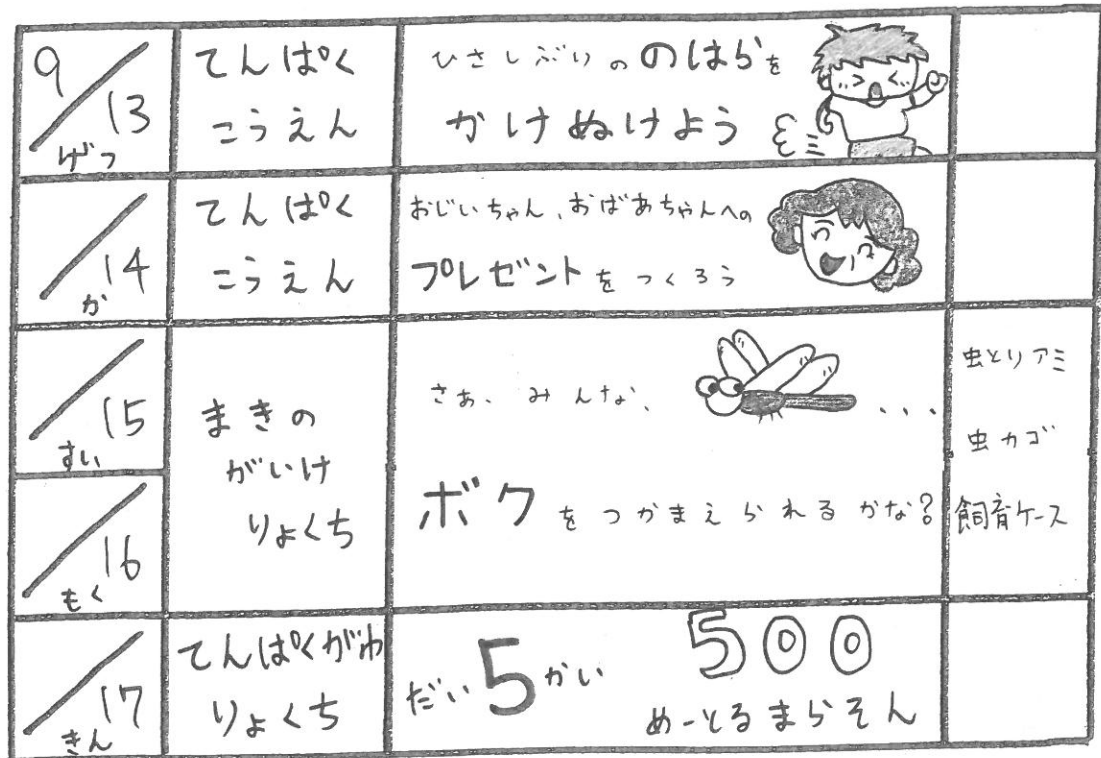 9/13
げつ
てんぱく
こうえん
ひさしぶりののはらを
かけぬけよう
/14
か
てんぱく
こうえん
おじいちゃん、おばあちゃんへの
プレゼントをつくろう
/15
すい
/16
もく
まきの
がいけ
りょくち
さぁ、みんな、...
ボクをつかまえられるかな?
虫とりアミ
虫カゴ
飼育ケース
/17
きん
てんぱくがわ
りょくち
だい5かい
500
めーとるまらそん